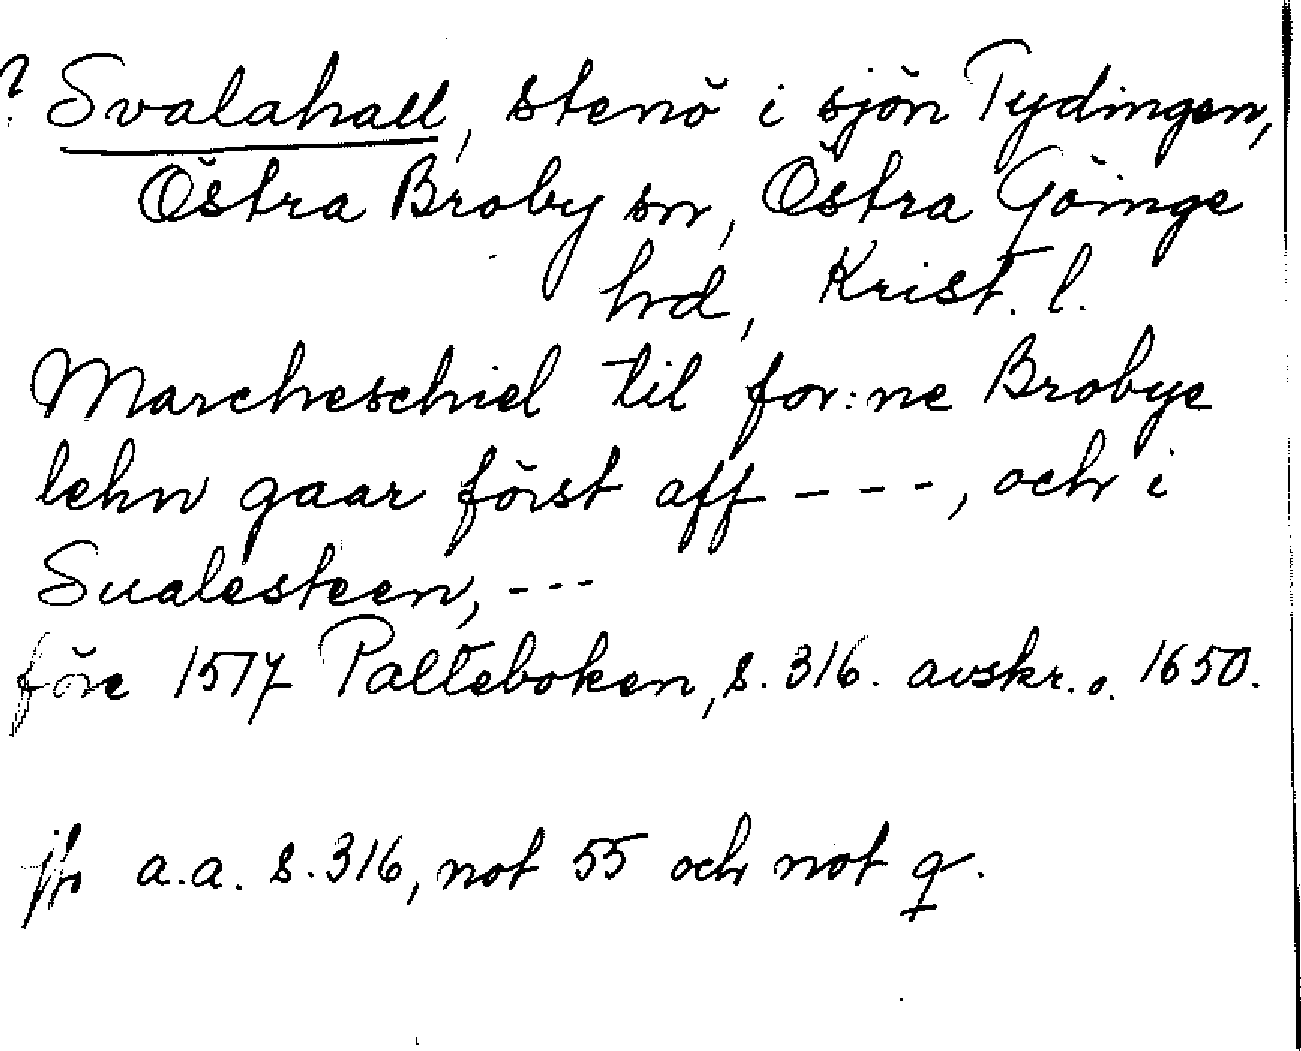 ? Svalahall, stenö i sjön Tydingen,
Östra Broby sn, Östra Göinge
hd, Krist. l.
Marcheschiel til for:ne Brobye
lehn gaar först aff - - - -, och i
Sualesteen, - - -
före 1517 Palteboken, s. 316. avskr. o. 1650.
jfr a.a. s. 316, not 55 och not q.